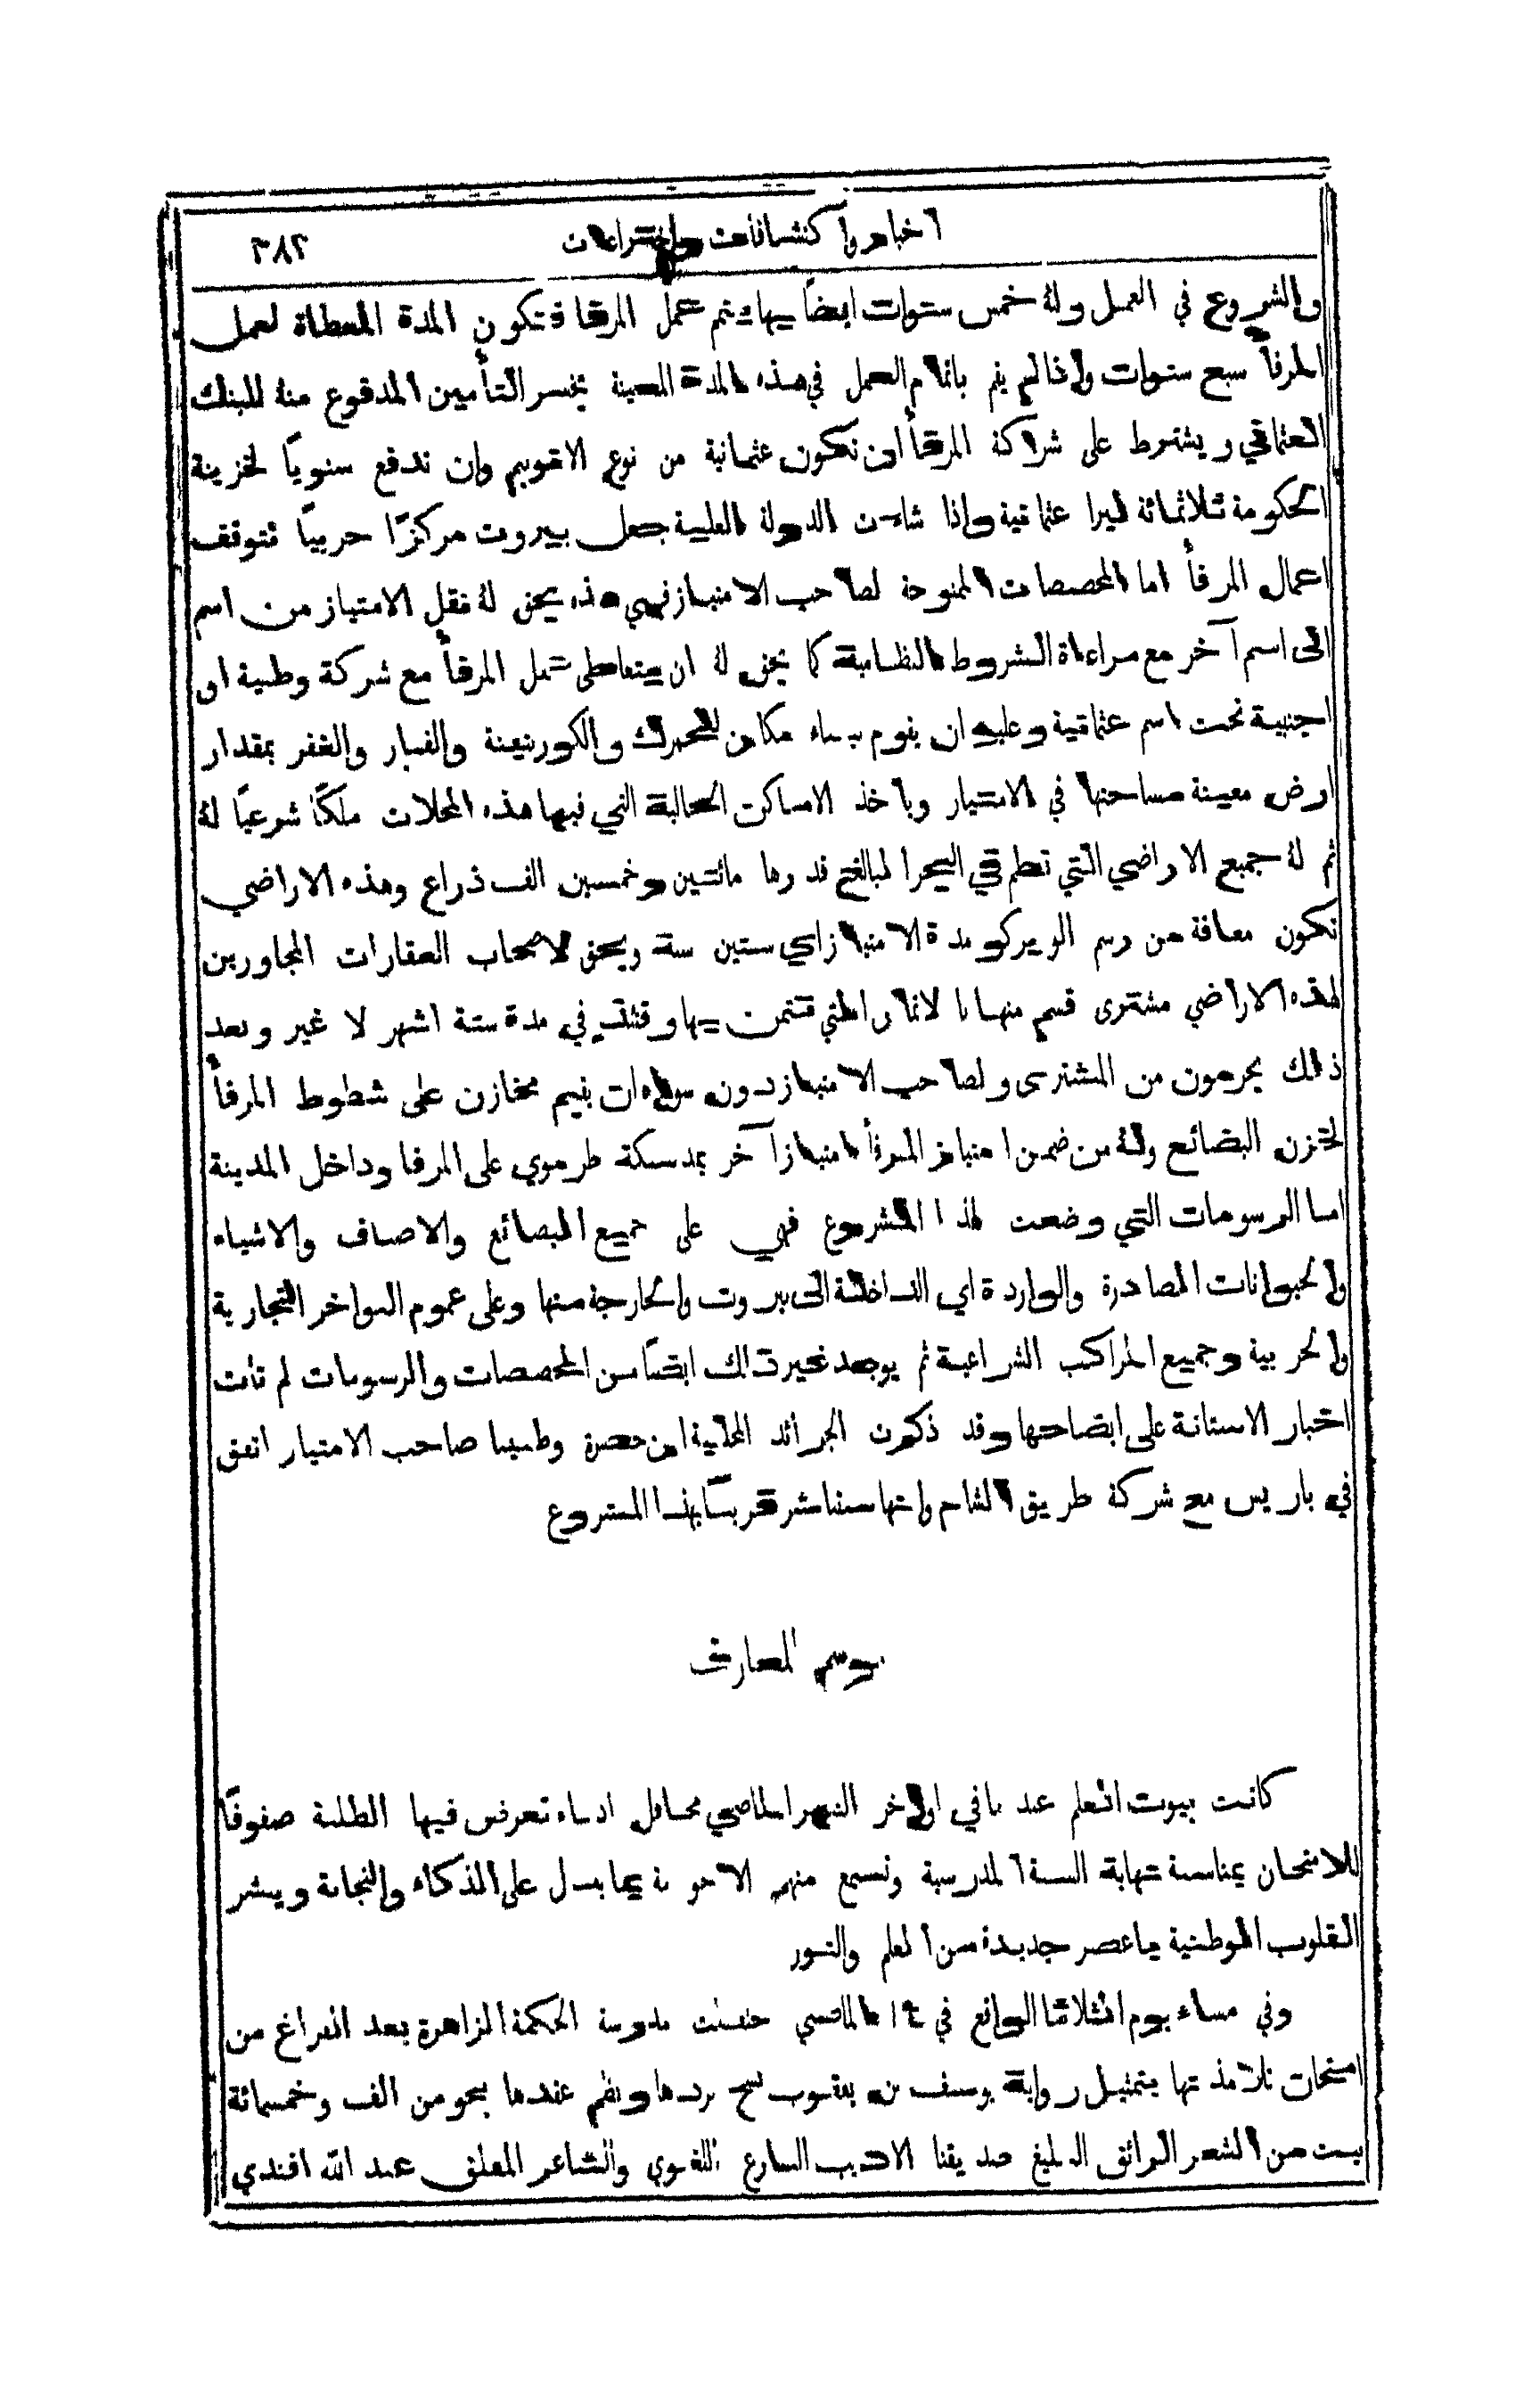 اخبار واكتشافات واختراعات ٣٨٢
والشروع في العمل وله خمس سنوات ايضاً بها يتم عمل المرفا فتكون المدة المعطاة لعمل
المرفأ سبع سنوات واذا لم يقم باتمام العمل في هذه المدة المعينة يخسر التأمين المدفوع منه للبنك
العثماني ويشترط على شراكة المرفأ ان تكون عثمانية من نوع الانونيم وان تدفع سنوياً لخزينة
الحكومة ثلاثمائة ليرا عثمانية واذا شاءت الدولة العلية جعل بيروت مركزًا حربيًا تتوقف
اعمال المرفأ اما المخصصات الممنوحة لصاحب الامتياز فهي هذه يحق له نقل الامتياز من اسم
الى اسم آخر مع مراعاة الشروط النظامية كما يحق له ان يتعاطى عمل المرفأ مع شركة وطنية او
اجنبية تحت اسم عثمانية وعليه ان يقوم ببناء مكان للجمرك والكورنتينة والفنار والغفر بمقدار
ارض معينة مساحتها في الامتياز وياخذ الاماكن الحالية التي فيها هذه المحلات ملكًا شرعيًا له
ثم له جميع الاراضي التي تطم في البحر البالغ قدرها مائتين وخمسين الف ذراع وهذه الاراضي
تكون معافة من رسم الويركو مدة الامتياز اي ستين سنة ويحق لاصحاب العقارات المجاورين
لهذه الاراضي مشترى قسم منها بالاثمار التي تتمن بها وقتئذ في مدة ستة اشهر لا غير وبعد
ذلك يحرمون من المشترى ولصاحب الامتياز دون سواه ان يقيم مخازن على شطوط المرفأ
لخزن البضائع وله من ضمن امتياز المرفأ امتيازآخر بمد سكة طرموي على المرفا وداخل المدينة
اما الرسومات التي وضعت لهذا المشروع فهي على جميع البضائع والاصناف والاشياء
والحيوانات الصادرة والواردة اي الداخلة الى بيروت والخارجة منها وعلى عموم البواخر التجارية
والحربية وجميع المراكب الشراعية ثم يوجد غير ذلك ايضاً من المخصصات والرسومات لم تات
اخبار الاستانة على ايضاحها وقد ذكرت الجرائد المحلية ان حضرة وطنينا صاحب الامتياز اتفق
في باريس مع شركة طريق الشام وانها ستباشر قريبًا بهذا المشروع
موسم المعارف
كانت بيوت العلم عندنا في اواخر الشهر الماضي محافل ادباء تعرض فيها الطلبة صفوفًا
للامتحان بمناسبة نهاية السنة المدرسية وتسمع منهم الاجوبة بما يدل على الذكاء والنجابة ويبشر
القلوب الوطنية باعصر جديدة من العلم والنور
وفي مساء يوم الثلاثا الواقع في ١٤ الماضي احتفلت مدرسة الحكمة الزاهرة بعد الفراغ من
امتحان تلامذتها بتمثيل رواية يوسف بن يعقوب نسج بردها ونظم عقدها بنحو من الف وخمسمائة
بيت من الشعر الرائق البليغ صديقنا الاديب البارع اللغوي والشاعر المفلق عبد الله افندي